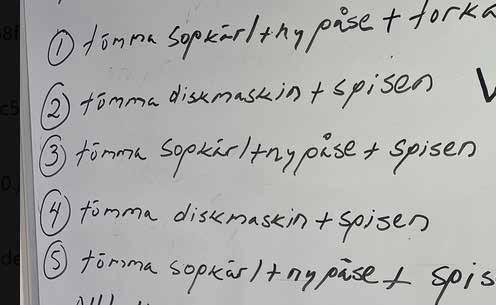 ① tömma sopkärl+ny påse + torka
② tömma diskmaskin + spisen
③ tömma sopkärl+ny påse + spisen
④ tömma diskmaskin + spisen
⑤ tömma sopkärl+ny påse + spis